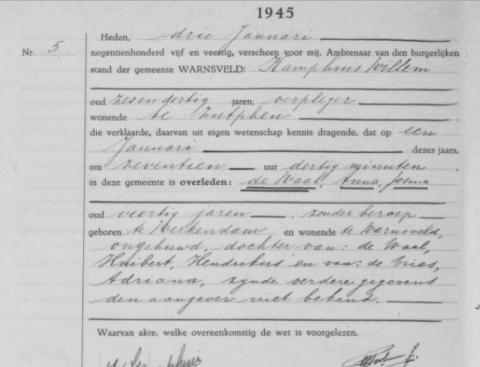 1945
Heden, drie Januari
Nr. 5
negentienhonderd vijf en veertig, verscheen voor mij, Ambtenaar van den burgerlijken
stand der gemeente WARNSVELD: Kamphuis Willem
oud zesendertig jaren, verpleger
wonende te Zutphen
die verklaarde, daarvan uit eigen wetenschap kennis dragende, dat op een
Januari dezes jaars,
om zeventien uur dertig minuten
in deze gemeente is overleden: de Waal, Anna,
oud veertig jaren, zonder beroep
geboren te Werkendam en wonende te Warnsveld,
ongehuwd, dochter van: de Waal,
Huibert, en van: de Vries,
Adriana, zijnde verdere gegevens
den aangever niet bekend.
Waarvan akte, welke overeenkomstig de wet is voorgelezen.